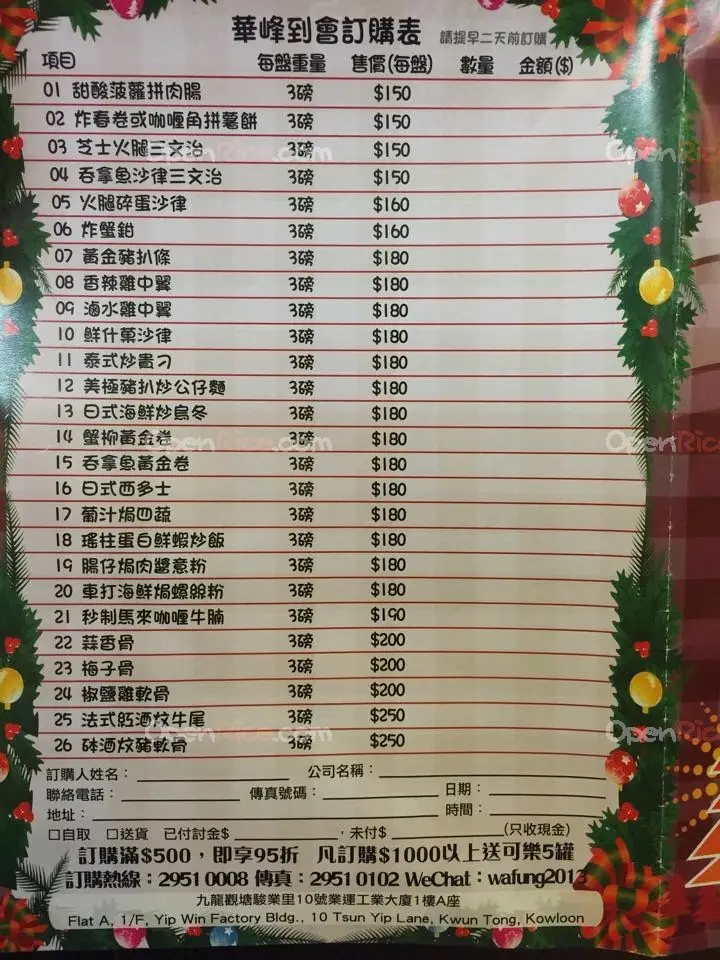 華峰到會訂購表 請提早二天前訂購
項目 每盤重量 售價(每盤) 數量 金額($)
01 甜酸菠蘿拼肉腸 3磅 $150
02 炸春卷或咖喱角拼薯餅 3磅 $150
03 芝士火腿三文治 3磅 $150
04 吞拿魚沙律三文治 3磅 $150
05 火腿碎蛋沙律 3磅 $160
06 炸蟹鉗 3磅 $160
07 黃金豬扒條 3磅 $180
08 香辣雞中翼 3磅 $180
09 滷水雞中翼 3磅 $180
10 鮮什菓沙律 3磅 $180
11 泰式炒貴刁 3磅 $180
12 美極豬扒炒公仔麵 3磅 $180
13 日式海鮮炒烏冬 3磅 $180
14 蟹柳黃金卷 3磅 $180
15 吞拿魚黃金卷 3磅 $180
16 日式西多士 3磅 $180
17 葡汁焗四蔬 3磅 $180
18 瑤柱蛋白鮮蝦炒飯 3磅 $180
19 腸仔焗肉醬意粉 3磅 $180
20 車打海鮮焗螺絲粉 3磅 $180
21 秒制馬來咖喱牛腩 3磅 $190
22 蒜香骨 3磅 $200
23 梅子骨 3磅 $200
24 椒鹽雞軟骨 3磅 $200
25 法式紅酒炆牛尾 3磅 $250
26 砵酒炆豬軟骨 3磅 $250
訂購人姓名： 公司名稱：
聯絡電話： 傳真號碼： 日期：
地址： 時間：
□自取 □送貨 已付訂金$ ，未付$ (只收現金)
訂購滿$500，即享95折 凡訂購$1000以上送可樂5罐
訂購熱線：2951 0008 傳真：2951 0102 WeChat：wafung2013
九龍觀塘駿業里10號業運工業大廈1樓A座
Flat A, 1/F, Yip Win Factory Bldg., 10 Tsun Yip Lane, Kwun Tong, Kowloon
OpenRice.com